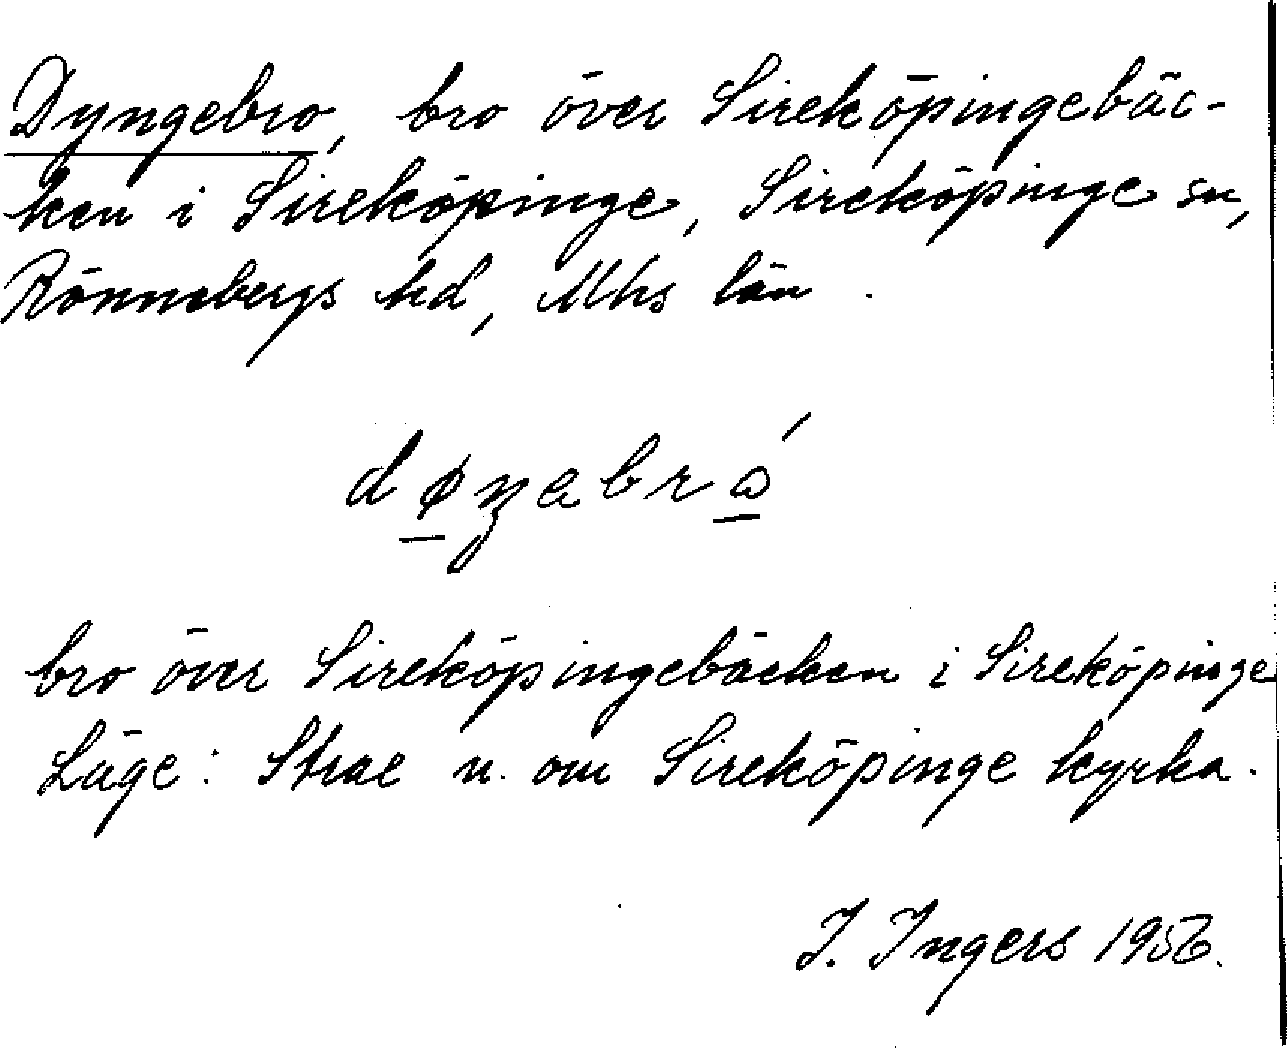 Dyngebro, bro över Sireköpingebäc-
ken i Sireköpinge, Sireköpinge sn,
Rönnebergs hd, Mhs län.
døŋabró
bro över Sireköpingebäcken i Sireköpinge
Läge: Strae n. om Sireköpinge kyrka.
I. Ingers 1956.